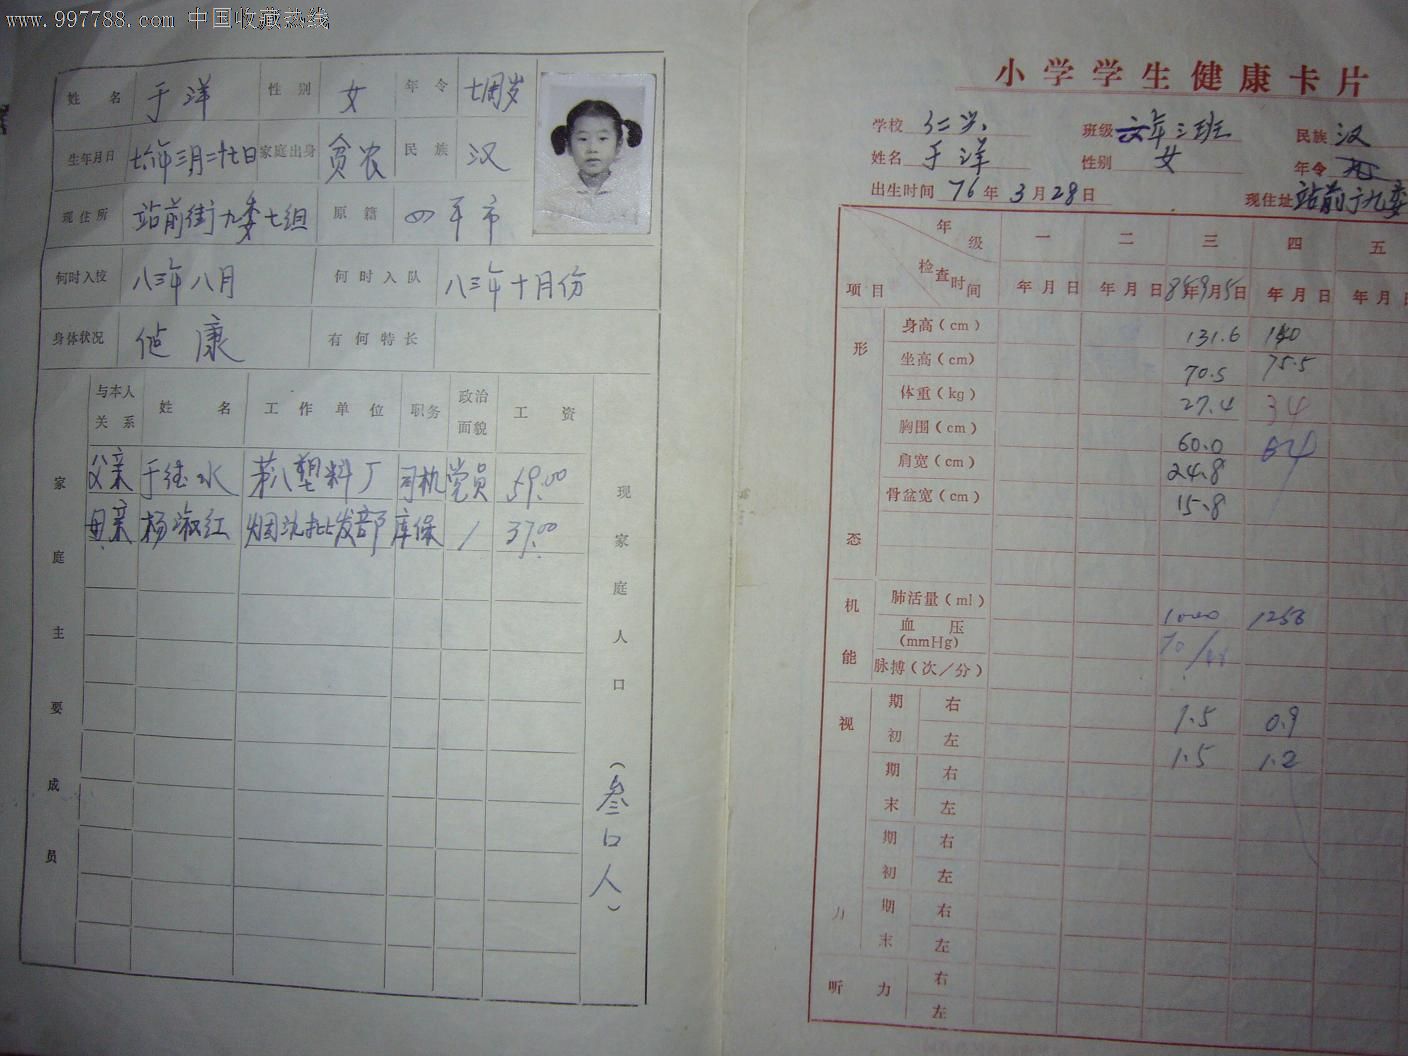 www.997788.com 中国收藏热线
姓名 于洋 性别 女 年令 七周岁
生年月日 七六年三月二十七日 家庭出身 贫农 民族 汉
现住所 站前街九委七组 原籍 四平市
何时入校 八三年八月 何时入队 八三年十月份
身体状况 健康 有何特长
与本人关系 姓名 工作单位 职务 政治面貌 工资
家庭主要成员
父亲 于 水 第八塑料厂 司机 党员 59.00
母亲 杨淑红 烟 批发部 库保 / 37.00
现家庭人口(叁口人)
小学学生健康卡片
学校 仁兴 班级 六年三班 民族 汉
姓名 于洋 性别 女 年令
出生时间 76年3月28日 现住址 站前于九委
年级 一 二 三 四 五
项目 检查时间 年月日 年月日 85年9月5日 年月日 年月日
形态
身高(cm) 131.6 140
坐高(cm) 70.5 75.5
体重(kg) 27.4 34
胸围(cm) 60.0 64
肩宽(cm) 24.8
骨盆宽(cm) 15.8
机能
肺活量(ml) 1000 1250
血压(mmHg)
脉搏(次/分)
视力
期初 右 1.5 0.9
左 1.5 1.2
期末 右
左
期初 右
左
期末 右
左
听力 右
左